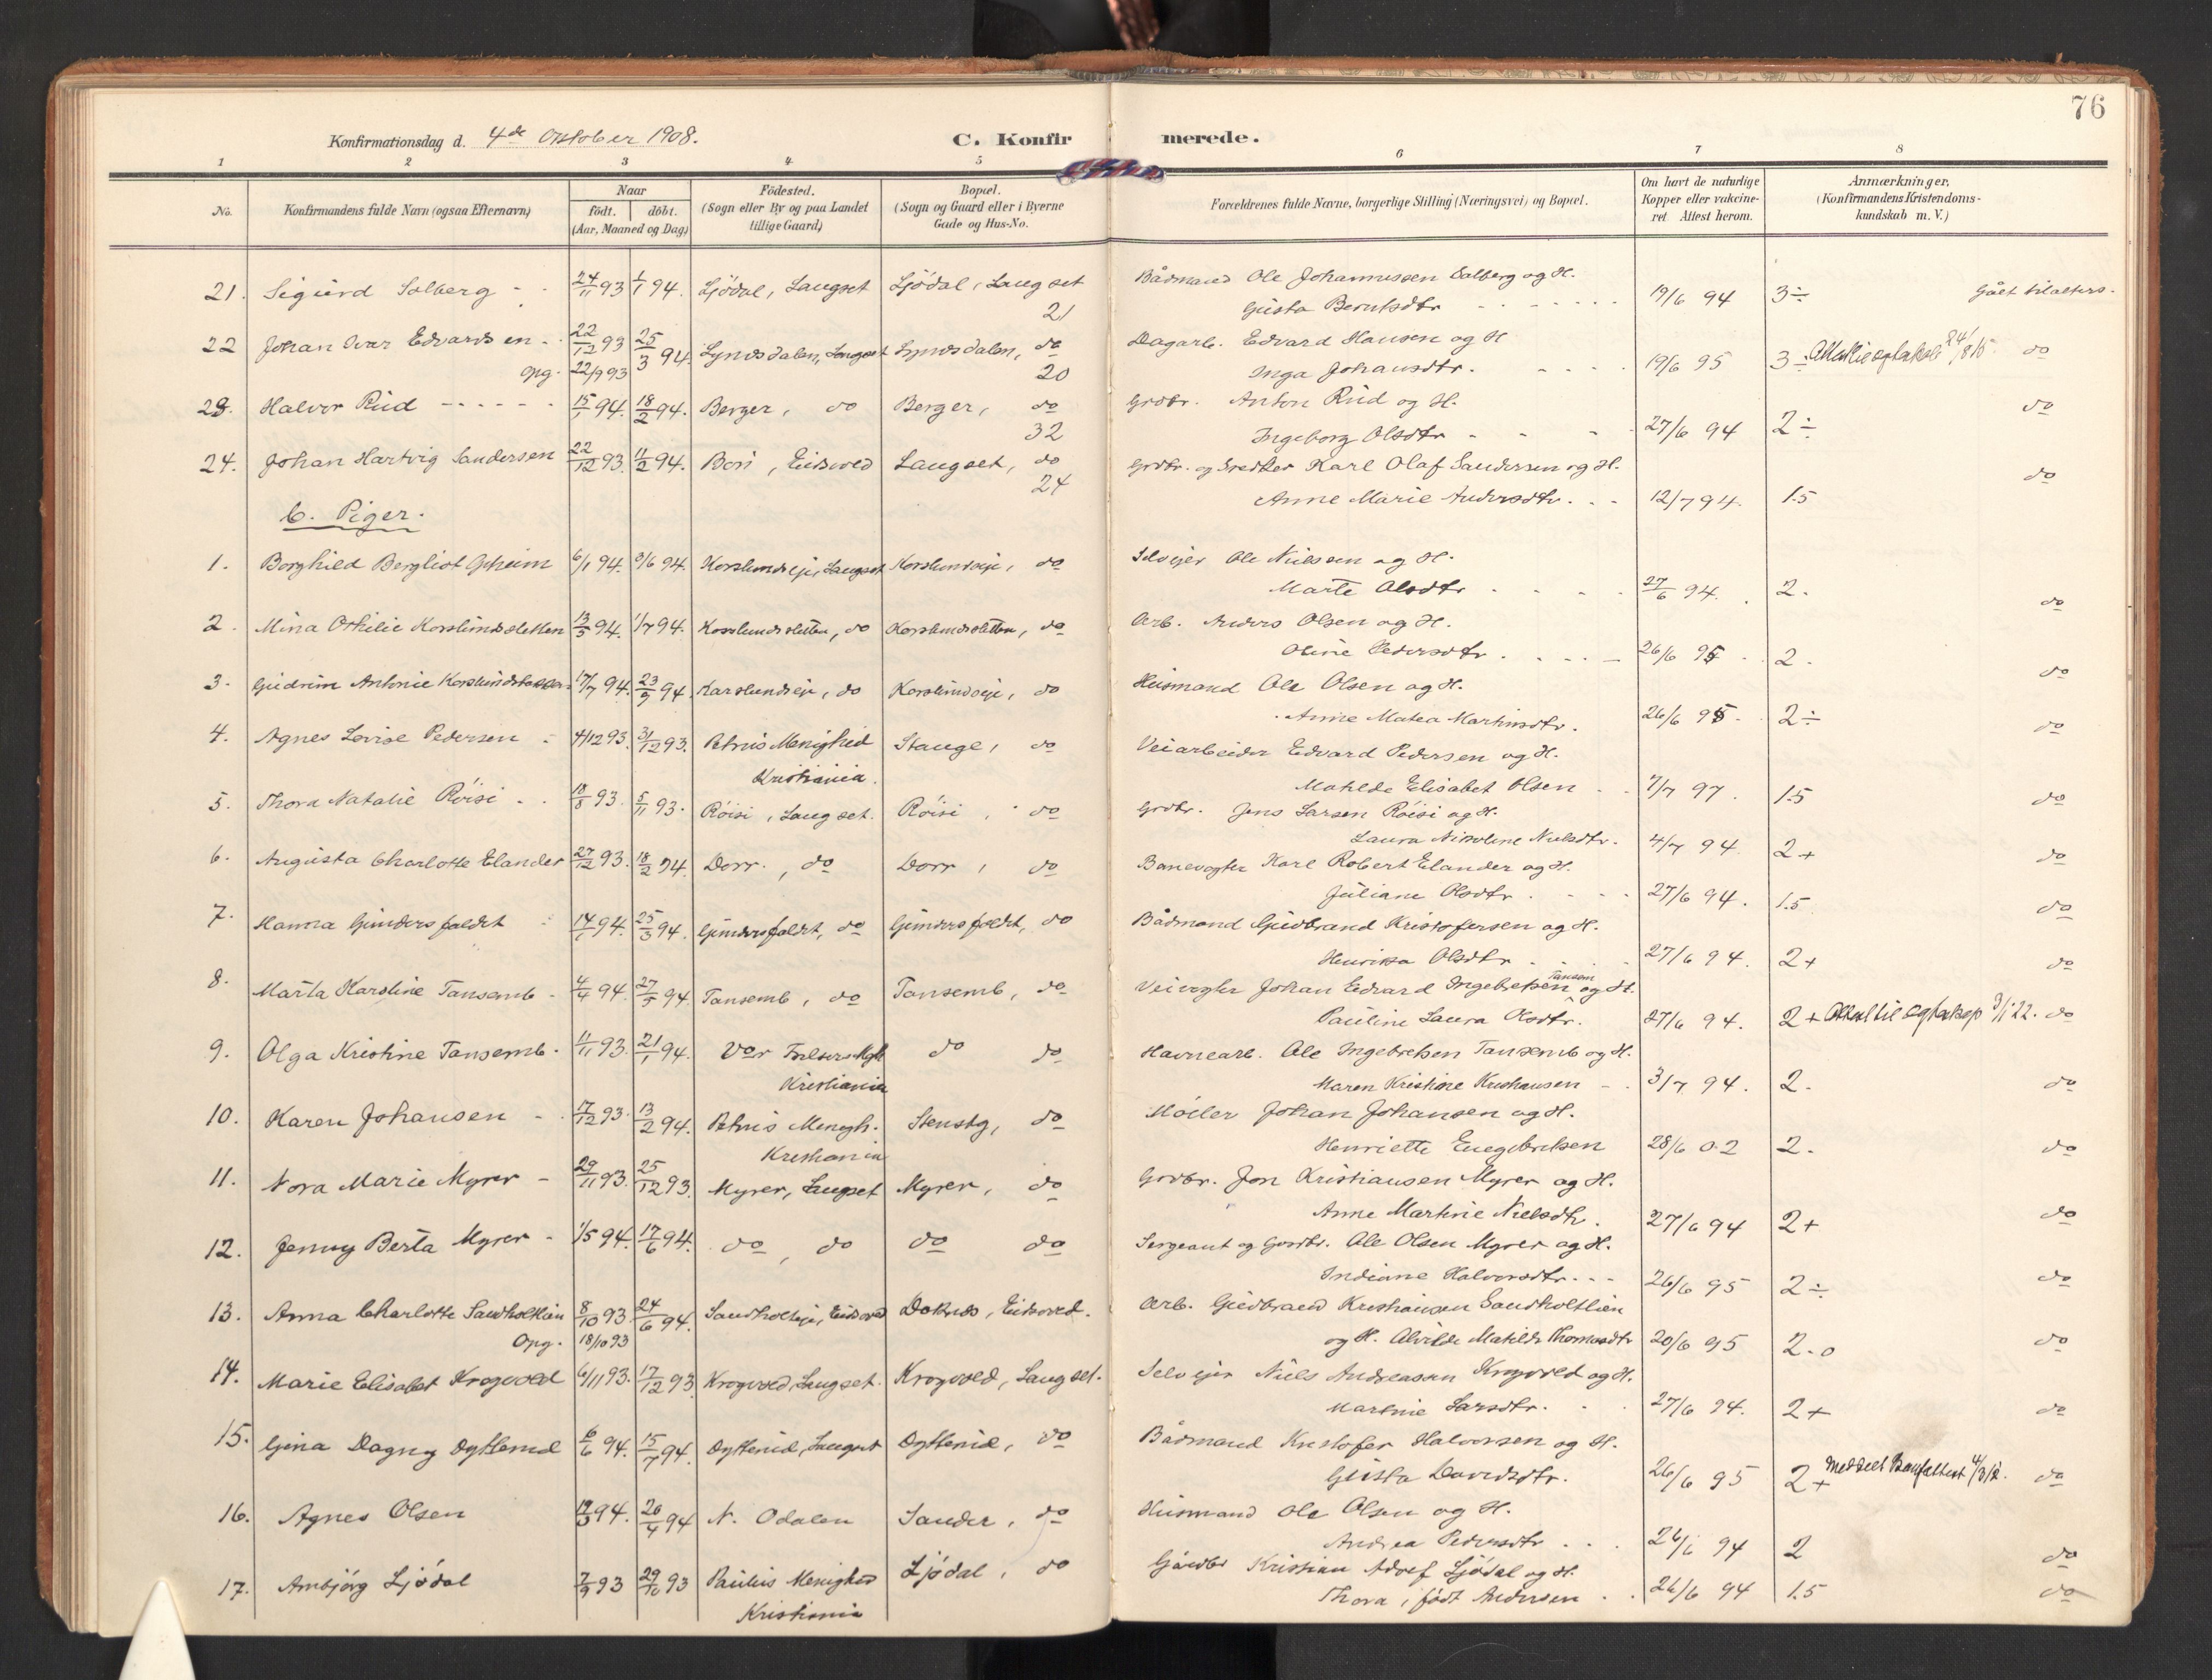 76
Konfirmationsdag d. 4de Oktober 1908.
C. Konfir merede.
1 2 3 4 5 6 7 8
No.
Konfirmandens fulde Navn (ogsaa Efternavn)
Naar
födt. döbt.
(Aar, Maaned og Dag)
Födested.
(Sogn eller By og paa Landet
tillige Gaard)
Bopæl.
(Sogn og Gaard eller i Byerne
Gade og Hus-No.
Forældrenes fulde Navne, borgerlige Stilling (Næringsvei) og Bopæl.
Om havt de naturlige
Kopper eller vakcine-
ret Attest herom.
Anmærkninger,
(Konfirmandens Kristendoms-
kundskab m. V.)
21. Sigurd Solberg 24/11 93 1/1 94. Ljödal, Langset Ljödal, Langset Bådmand Ole Johannessen Solberg og H.
21 Gusta Berntsdtr 19/6 94 3÷ Gået tilalters.
22 Johan Ivar Edvardsen 22/12 93 25/3 94. Lyndsdalen, Langset Lyndsdalen, do Dagarb. Edvard Hansen og H
Opg. 22/9 93 20 Inga Johansdtr. 19/6 95 3÷ do
23. Halvor Rud 15/1 94. 18/2 94. Berger, do Berger, do Grdbr. Anton Rud og H.
32 Ingeborg Olsdtr 27/6 94 2÷ do
24. Johan Hartvig Sandersen 22/12 93. 11/2 94. Bøn, Eidsvold Langset, do Grdbr. og Karl Olaf Sandersen og H.
24 Anne Marie Andersdtr. 12/7 94. 1.5 do
b. Piger.
1. Borghild Bergliot Opheim 6/1 94. 3/6 94. Korslundseje, Langset Korslundseje, do Selvejer Ole Nielssen og H.
Marte Olsdtr 27/6 94. 2. do
2. Mina Othilie Korslundsletten 13/5 94. 1/7 94. Korslundsletten, do Korslundsletten, do Arb. Anders Olsen og H.
Oline Pedersdtr. 26/6 95 2. do
3. Gudrun Antonie 17/7 94. 23/9 94. Korslundseje, do Korslundseje, do Husmand Ole Olsen og H.
Anne Matea Martinsdtr. 26/6 95. 2÷ do
4. Agnes Lovise Pedersen 4/12 93. 31/12 93. Petrus Menighed Stange, do Veiarbeider Edvard Pedersen og H.
Kristiania. Matilde Elisabet Olsen 7/7 97. 1.5 do
5. Thora Natalie Röisi 18/8 93. 5/11 93. Röisi, Langset. Röisi, do Grdbr. Jens Larsen Röisi og H.
Laura Nikoline Nielsdtr. 4/7 94. 2+ do
6. Augusta Charlotte Elander 27/12 93. 18/2 94. Dorr, do Dorr, do Banevogter Karl Robert Elander og H.
Juliane Olsdtr 27/6 94. 1.5 do
7. Hanna Gundersfaldet 14/1 94. 25/3 94. Gundersfaldet, do Gundersfaldet, do Bådmand Gudbrand Kristofersen og H.
Henrika Olsdtr 27/6 94. 2+ do
8. Marta Karoline Tansemb 4/4 94. 27/5 94. Tansemb, do Tansemb, do Veivogter Johan Edvard Ingebretsen Tansem og H.
Pauline Laura Olsdtr. 27/6 94. 2+ Attest til ægteskap 3/1 22. do
9. Olga Kristine Tansemb. 11/11 93. 21/1 94. Vor Frelsers Mgh do do Havnearb. Ole Ingebretsen Tansemb og H.
Kristiania Maren Kristine Kristiansen 3/7 94. 2. do
10. Karen Johansen 17/12 93. 13/2 94. Petrus Menigh. Stensbg, do Möller Johan Johansen og H.
Kristiania Henriette Engebretsen 28/6 02 2. do
11. Nora Marie Myrer 29/11 93. 25/12 93. Myrer, Langset Myrer, do Grdbr. Jon Kristiansen Myrer og H.
Anne Martine Nielsdtr. 27/6 94 2+ do
12. Jenny Berta Myrer 1/5 94. 17/6 94. do, do do do Sergeant og Gårdbr. Ole Olsen Myrer og H.
Indiane Halvorsdtr. 26/6 95 2÷ do
13. Anna Charlotte Sandholtlien 8/10 93. 24/6 94. Sandholteje, Eidsvold Doknes, Eidsvold. Arb. Gudbrand Kristiansen Sandholtlien
Opg. 18/10 93 og H. Alvilde Matilde Thomasdtr 20/6 95 2.0 do
14. Marie Elisabet Krogvold 6/11 93. 17/12 93. Krogvold, Langset. Krogvold, Langset. Selvejer Niels Andreassen Krogvold og H.
Martinie Larsdtr. 27/6 94. 2+ do
15. Gina Dagny Dytterud 6/6 94. 15/7 94. Dytterud, Langset Dytterud, do Bådmand Kristofer Halvorsen og H.
Gusta Davidsdtr. 26/6 95 2+ Meddelt do
16. Agnes Olsen 19/3 94. 26/4 94 N. Odalen Sander, do Husmand Ole Olsen og H.
Andrea Pedersdtr 26/6 94 2 do
17. Ambjörg Ljödal 7/9 93 29/10 93 Paulus Menighed Ljödal, do Gårdbr Kristian Adolf Ljödal og H.
Kristiania Thora, födt Andersen 26/6 94 1.5 do